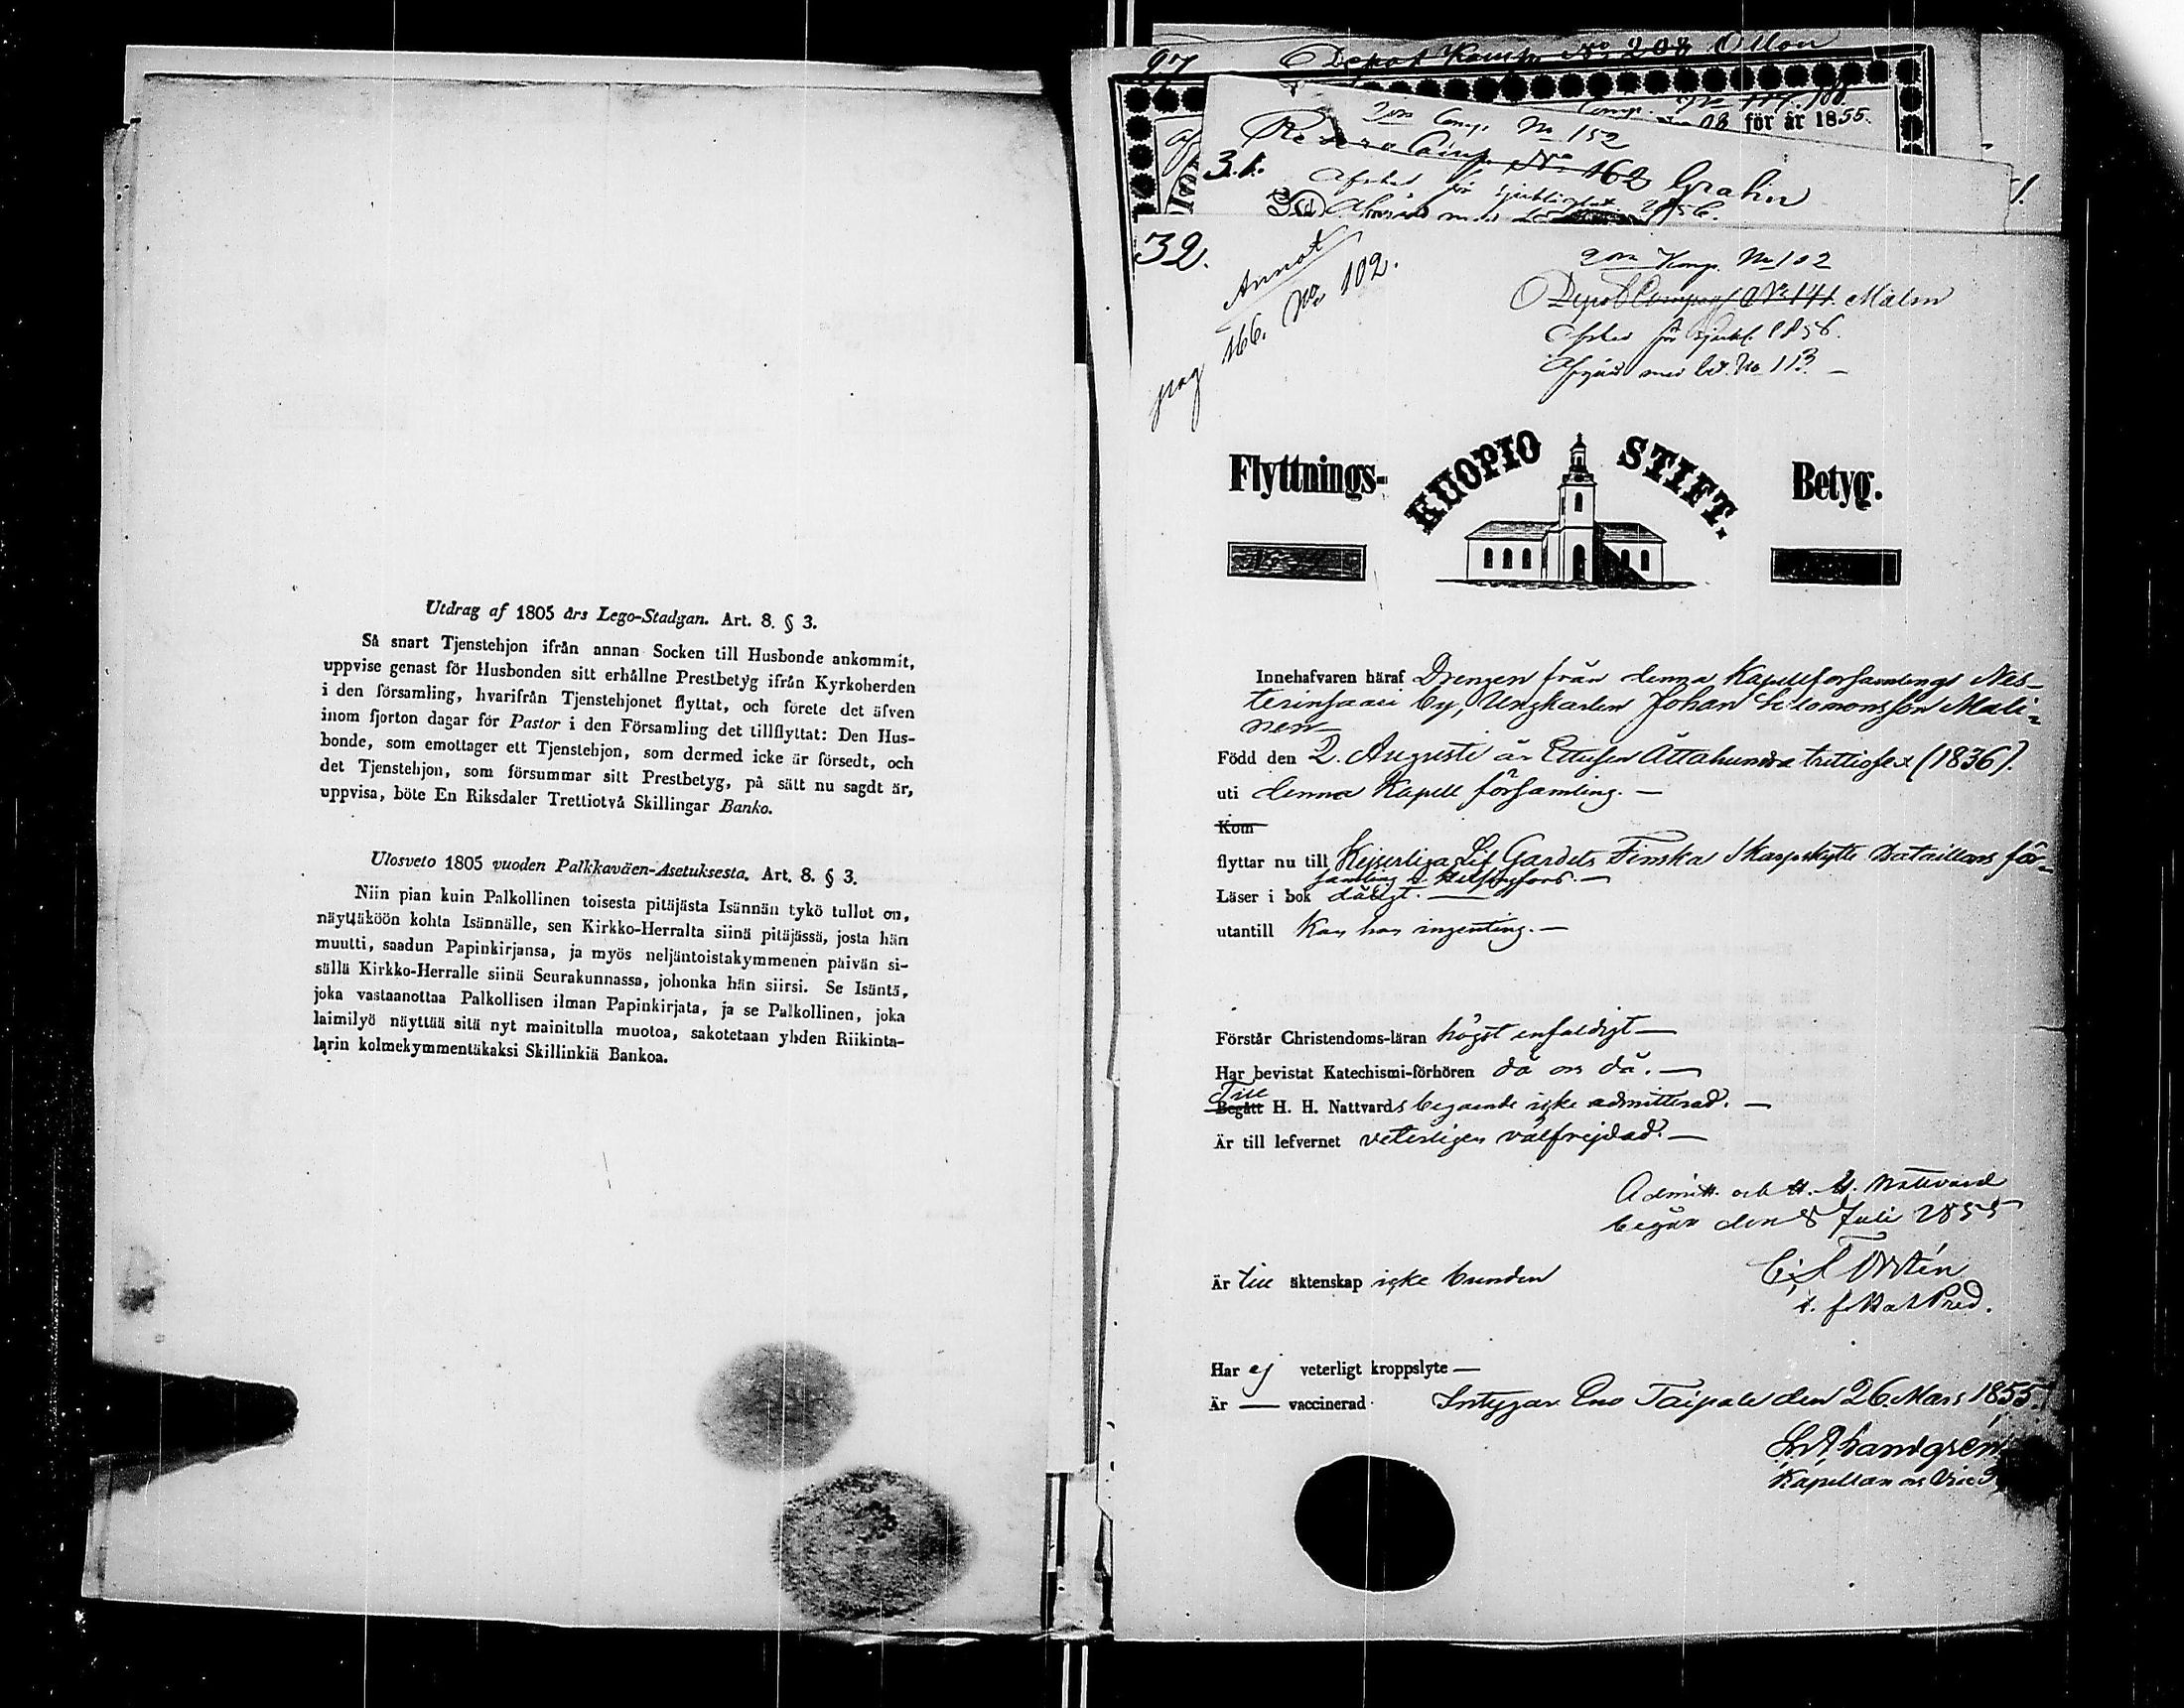 Utdrag af 1805 års Lego-Stadgan. Art. 8. § 3.
Så snart Tjenstehjon ifrån annan Socken till Husbonde ankommit,
uppvise genast för Husbonden sitt erhållne Prestbetyg ifrån Kyrkoherden
i den församling, hvarifrån Tjenstehjonet flyttat, och förete det äfven
inom fjorton dagar för Pastor i den Församling det tillflyttat: Den Hus-
bonde, som emottager ett Tjenstehjon, som dermed icke är försedt, och
det Tjenstehjon, som försummar sitt Prestbetyg, på sätt nu sagdt är,
uppvisa, böte En Riksdaler Trettiotvå Skillingar Banko.
Ulosveto 1805 vuoden Palkkaväen-Asetuksesta. Art. 8. § 3.
Niin pian kuin Palkollinen toisesta pitäjästa Isännän tykö tullut on,
näyttäköön kohta Isännälle, sen Kirkko-Herralta siinä pitäjässä, josta hän
muutti, saadun Papinkirjansa, ja myös neljäntoistakymmenen päivän si-
sällä Kirkko-Herralle siinä Seurakunnassa, johonka hän siirsi. Se Isäntä,
joka vastaanottaa Palkollisen ilman Papinkirjata, ja se Palkollinen, joka
laimilyö näyttää sitä nyt mainitulla muotoa, sakotetaan yhden Riikinta-
larin kolmekymmentäkaksi Skillinkiä Bankoa.
Depot Komp No 208
för år 1855.
Comp. No 152
31. No 162 Grahn
32.
Annot
pag 166. No 102.
2dra Komp. No 102
Depot Compagn No 141. Malm
Afsked för sjukl. 1856.
med litt. No 113. -
Flyttnings- KUOPIO STIFT. Betyg.
Innehafvaren häraf Drengen från denna Kapellförsamlings Nes-
terinsaari by, Ungkarlen Johan Salomonsson Mali-
nen
Född den 2. Augusti år Ettusen Åttahundra trettiosex (1836).
uti denna Kapell församling. -
Kom
flyttar nu till Kejserliga Lif Gardets Finska Skarpskytte Bataillons för-
samling i Helsingfors. -
Läser i bok dåligt. -
utantill Kan han ingenting. -
Förstår Christendoms-läran högst enfaldigt -
Har bevistat Katechismi-förhören då och då. -
Till
Begått H. H. Nattvards begående icke admitterad. -
Är till lefvernet veterligen välfrejdad. -
Admitt. och H. H. Nattvard
begår den 8 Juli 1855
Är till äktenskap icke bunden
Har ej veterligt kroppslyte -
Är - vaccinerad. Intygar Eno Taipale den 26. Mars 1855.
Kapellan